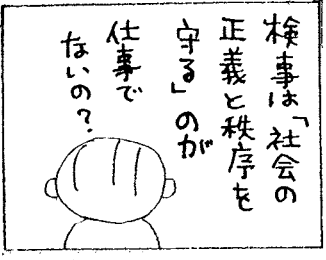 検事は「社会の
正義と秩序を
守る」のが
仕事で
ないの？